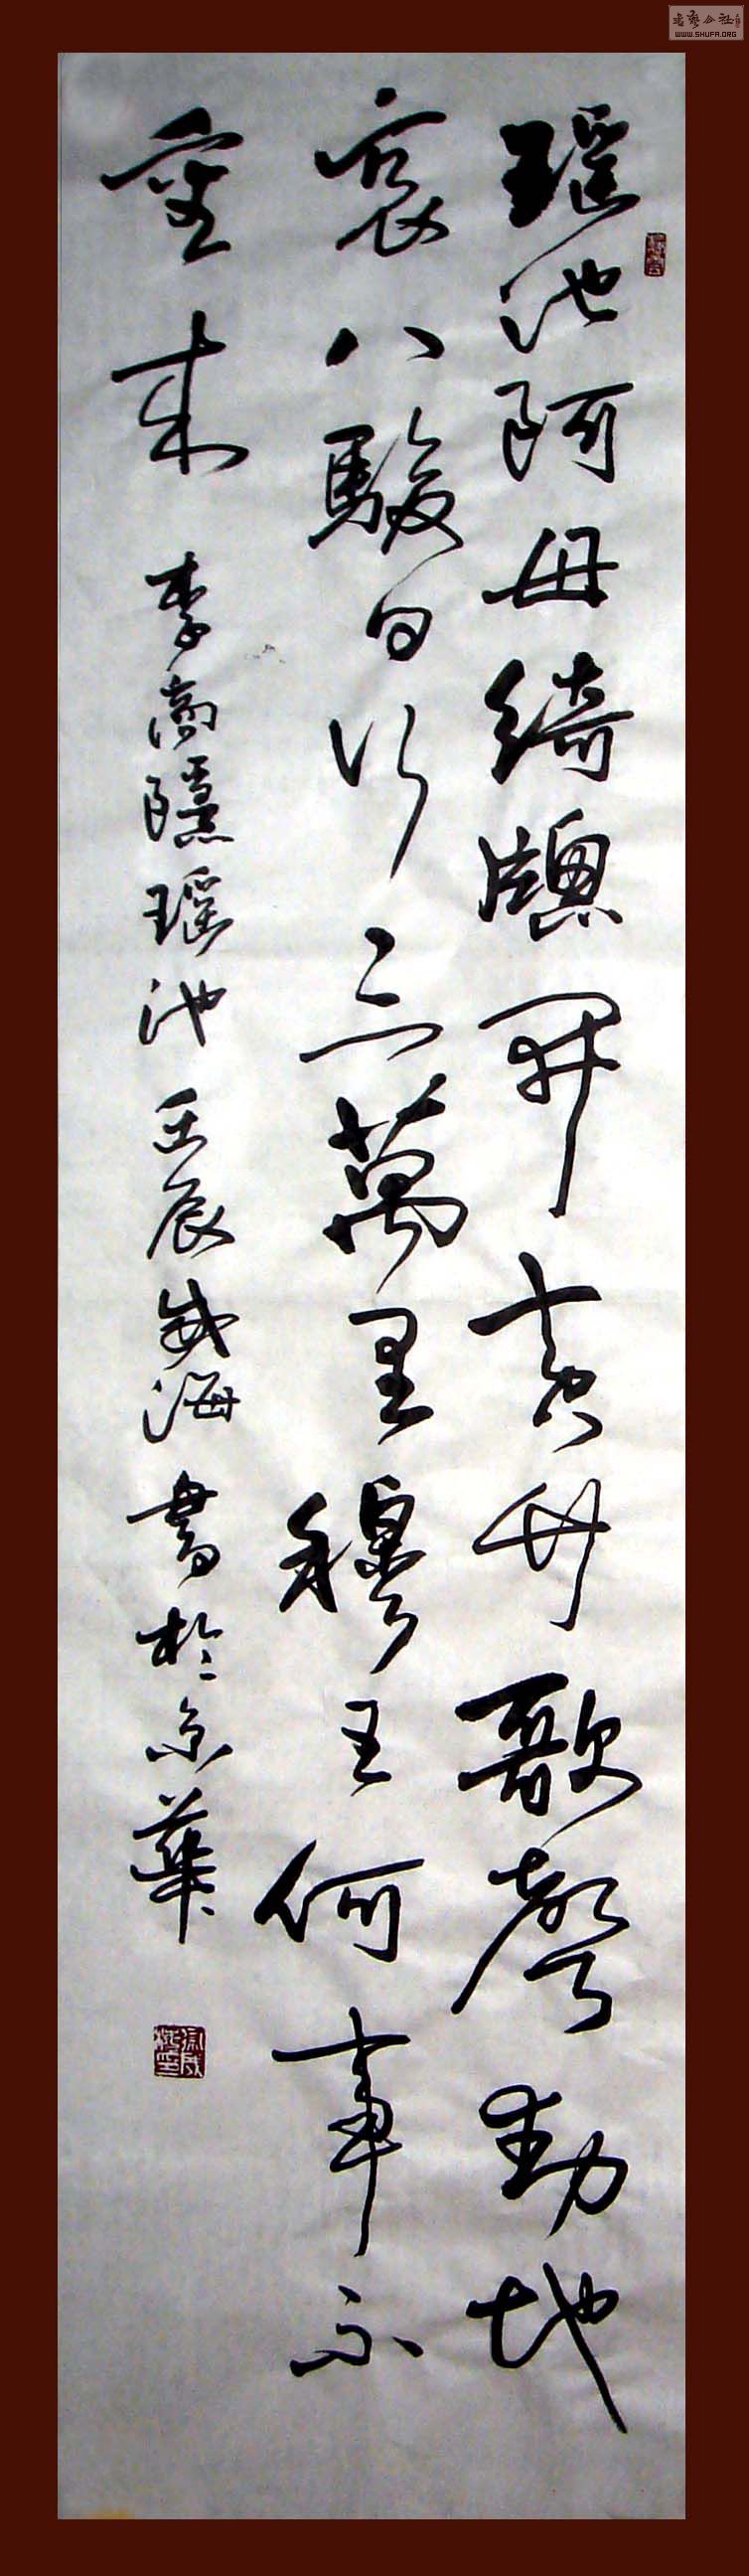 瑶池阿母綺牕開黄竹歌聲動地
哀八駿日行三萬里穆王何事不
重来
李商隱瑶池壬辰威海書於京華
WWW.SHUFA.ORG